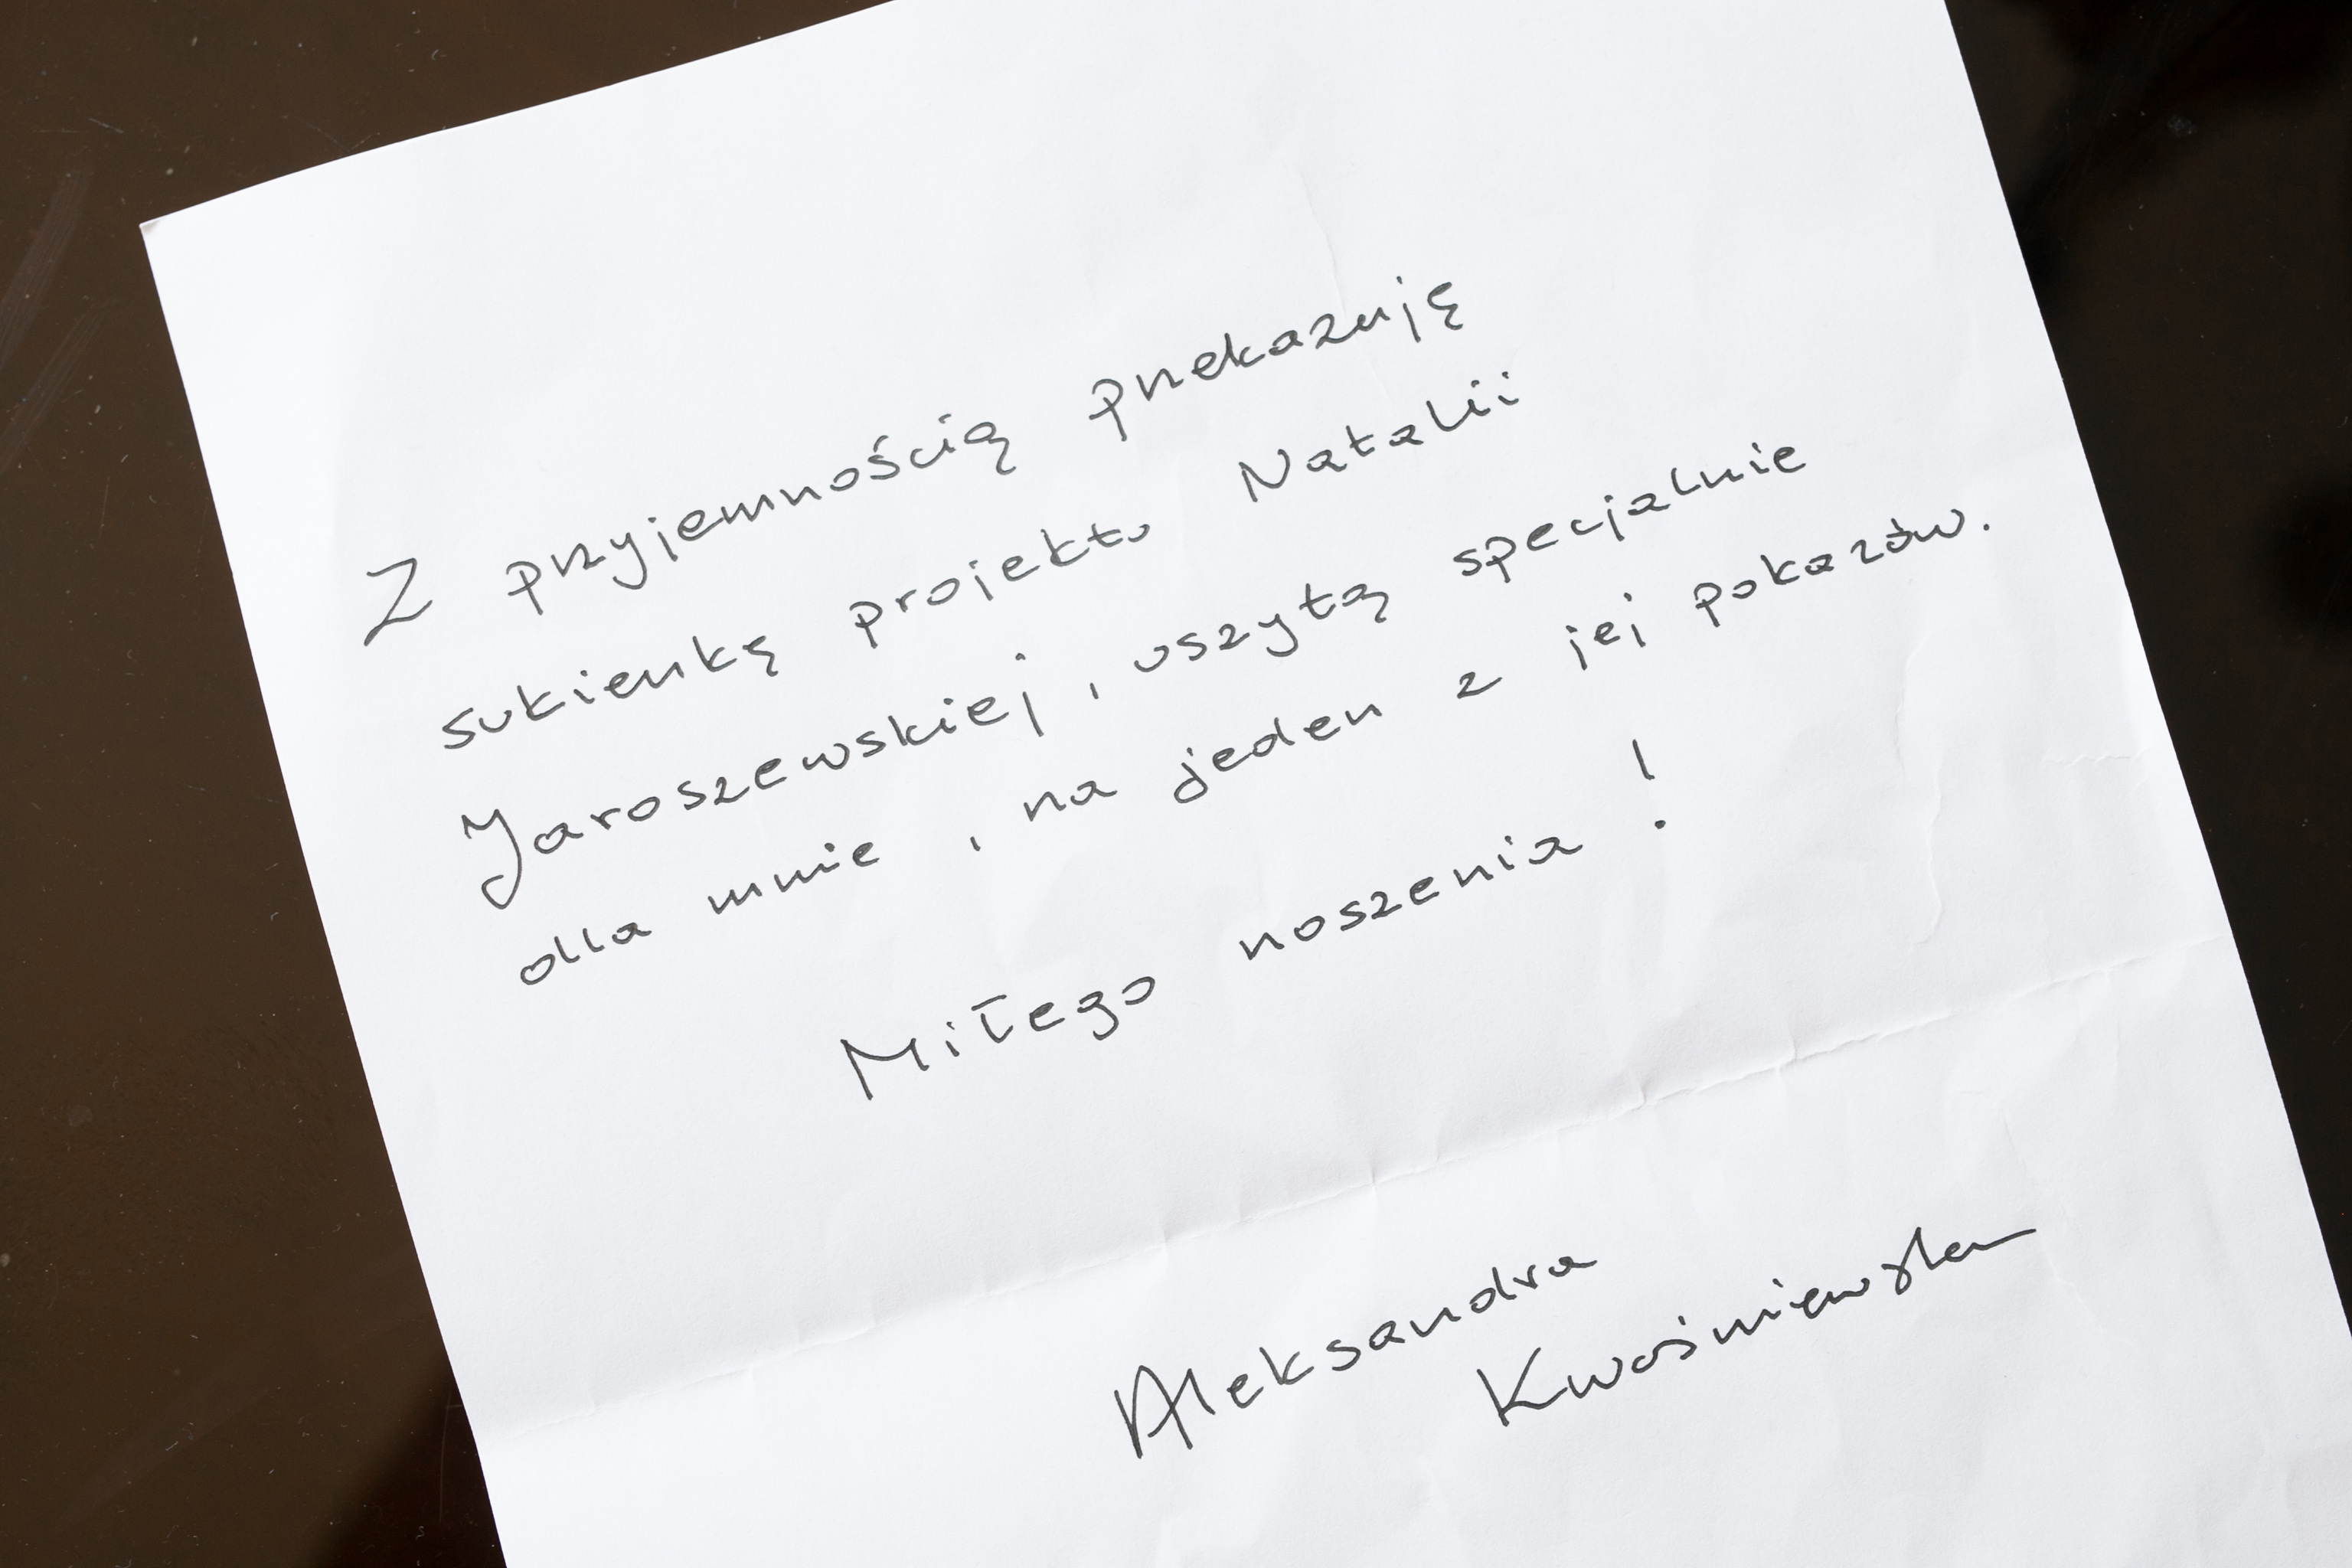 Z przyjemnością przekazuję
sukienkę projektu Natalii
Jaroszewskiej, uszytą specjalnie
dla mnie, na jeden z jej pokazów.
Miłego noszenia!
Aleksandra
Kwaśniewska